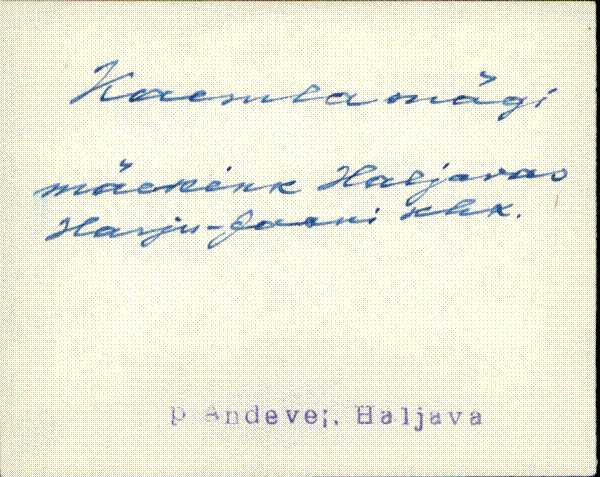 Kaemlamägi
mäekink Haljavas
Harju-Jaani khk.
P Andevei, Haljava